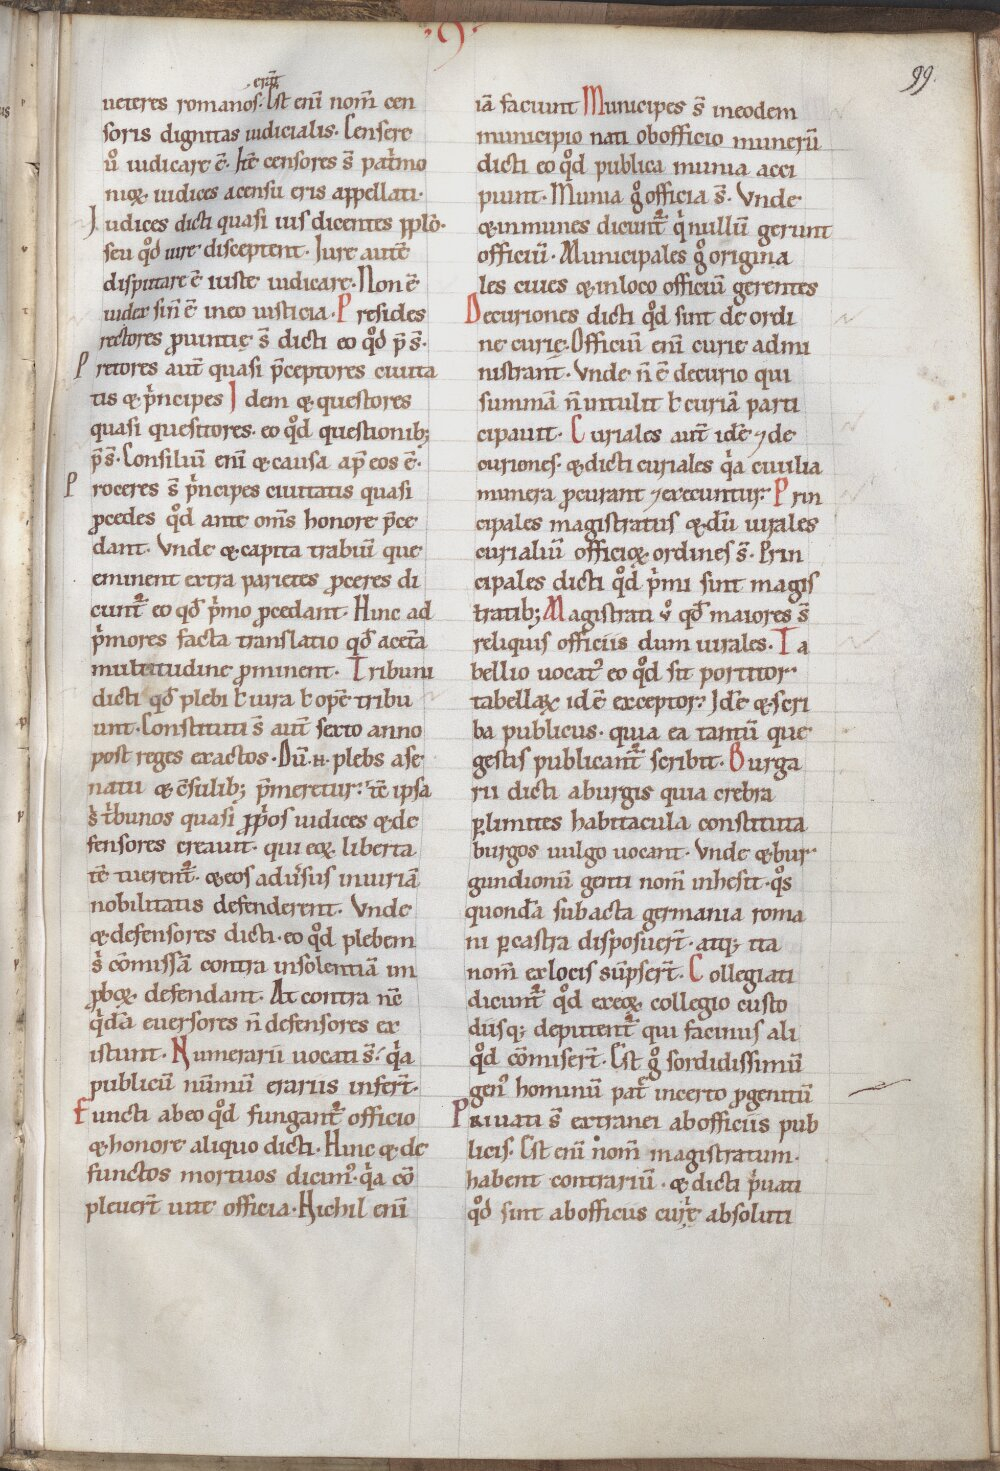 ·9·
99.
erāt
ueteres romanos. Est enī nom̄ cen
soris dignitas iudicialis. Censere
ū iudicare ē. Itē censores s̄ patͥmo
nioꝝ iudices a censu eris appellati.
Iudices dicti quasi ius dicentes pplo.
seu qͦd iure disceptent. Iure autē
disputare ē iuste iudicare. Non ē
iudex si n̄ ē in eo iusticia. Presides
rectores ꝓuintię s̄ dicti eo qͦd p̄s̄.
Pretores aut̄ quasi p̄ceptores ciuita
tis & pͥncipes Idem & questores
quasi quesitores. eo qͦd questionib;
p̄s̄. Consiliū enī & causa ap̄ eos ē.
Proceres s̄ pͥncipes ciuitatis quasi
ꝓcedes qͦd ante om̄s honore p̄ce
dant. Vnde & capita trabiū que
eminent extra parietes ꝓceres di
cunt᷑ eo qͦd pͥmo ꝓcedant. Hinc ad
pͥmores facta translatio qͦd a cet̄a
multitudine ꝓminent. Tribuni
dicti qͦd plebi ł iura ł opē tribu
unt. Constituti s̄ aut̄ sexto anno
post reges exactos. Dū .n. plebs a se
natu & c̄sulib; p̄meretur. t̄c ipsa
sͥ tͥbunos quasi ꝓpͥos iudices & de
fensores creauit. qui eoꝝ liberta
tē tuerent᷑. & eos adūsus iniuriā
nobilitatis defenderent. Vnde
& defensores dicti. eo qͦd plebem
sͥ cōmissā contra insolentiā im
ꝓboꝝ defendant. At contra nc̄
qͥdā euersores n̄ defensores ex
istunt. Numerarii uocati s̄. qͥa
publicū nūmū erariis infer̄t.
Functi ab eo qͦd fungant᷑ officio
& honore aliquo dicti. Hinc & de
functos mortuos dicimꝰ. qͥa cō
pleuer̄t uite officia. Nichil enī
iā faciunt Municipes s̄ in eodem
municipio nati ob officio munerū
dicti eo qͦd publica munia acci
piunt. Munia gͦ officia s̄. Vnde
& inmunes dicunt᷑ qͥ nullū gerunt
officiū. Municipales gͦ origina
les ciues & in loco officiū gerentes
Decuriones dicti qͦd sint de ordi
ne curię. Officiū enī curie admi
nistrant. Vnde n̄ ē decurio qui
summā n̄ intulit ł curiā parti
cipauit. Curiales aut̄ idē ⁊ de
curiones. & dicti curiales qͥa ciuilia
munera ꝓcurant ⁊ execuntur. Prin
cipales magistratus & dū uirales
curialiū officioꝝ ordines s̄. Prin
cipales dicti qͦd pͥmi sint magis
tratib; Magistrati ū qͦd maiores s̄
reliquis officiis dum uirales. Ta
bellio uocatᷣ eo qͦd sit portitor
tabellaꝝ idē exceptor. Idē & scri
ba publicus. quia ea tantū que
gestis publicant᷑ scribit. Burga
rii dicti a burgis quia crebra
ꝑ limites habitacula constituta
burgos uulgo uocant. Vnde & bur
gundionū genti nom̄ inhesit. qͦs
quondā subacta germania roma
ni ꝑ castra disposuer̄t. atq; ita
nom̄ ex locis sūpser̄t. Collegiati
dicunt᷑ qͦd ex eoꝝ collegio custo
diisq; deputent᷑ qui facinus ali
qͦd cōmiser̄t. Est gͦ sordidissimū
genꝰ hominū patͤ incerto ꝓgenitū
Priuati s̄ extranei ab officiis pub
licis. Est enī nom̄ magistratum.
habent contrariū. & dicti pͥuati
qͦd sint ab officiis curię absoluti